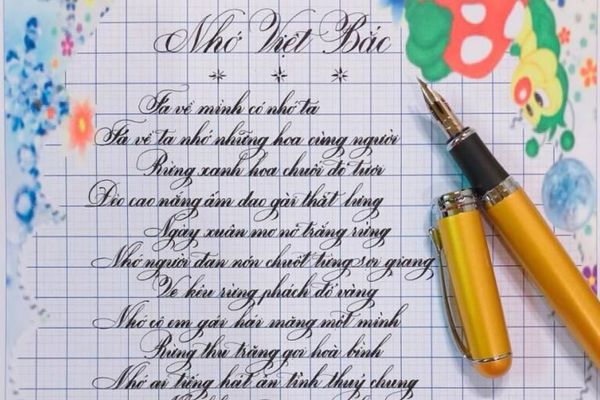 Nhớ Việt Bắc
Ta về mình có nhớ ta
Ta về ta nhớ những hoa cùng người
Rừng xanh hoa chuối đỏ tươi
Đèo cao nắng ánh dao gài thắt lưng
Ngày xuân mơ nở trắng rừng
Nhớ người đan nón chuốt từng sợi giang
Ve kêu rừng phách đổ vàng
Nhớ cô em gái hái măng một mình
Rừng thu trăng gọi hoà bình
Nhớ ai tiếng hát ân tình thuỷ chung